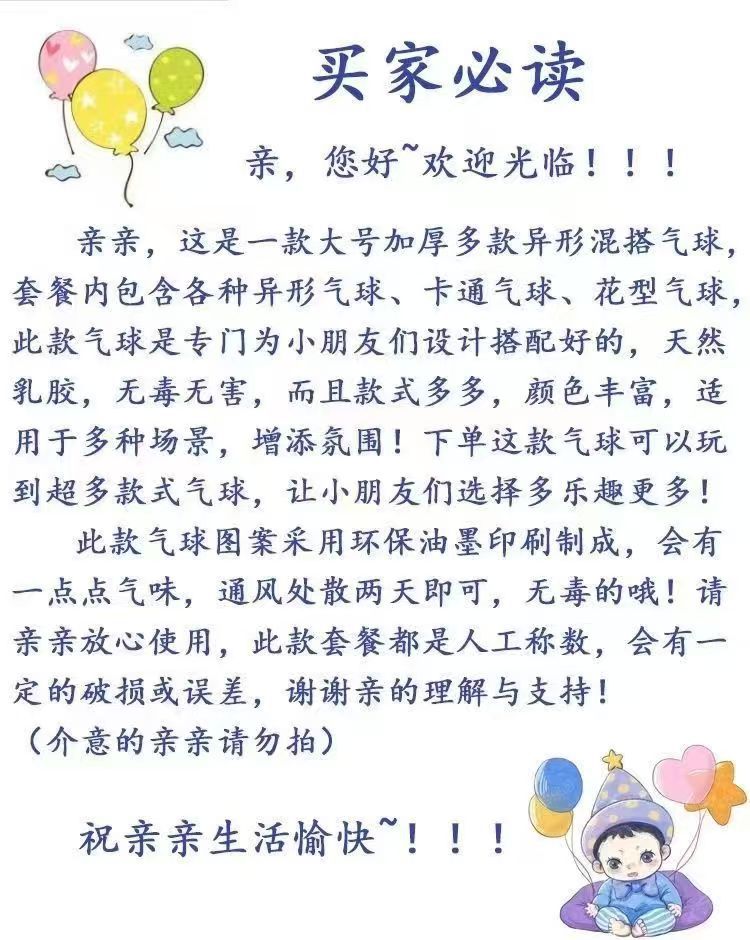 买家必读
亲，您好~欢迎光临！！！
亲亲，这是一款大号加厚多款异形混搭气球，
套餐内包含各种异形气球、卡通气球、花型气球，
此款气球是专门为小朋友们设计搭配好的，天然
乳胶，无毒无害，而且款式多多，颜色丰富，适
用于多种场景，增添氛围！下单这款气球可以玩
到超多款式气球，让小朋友们选择多乐趣更多！
此款气球图案采用环保油墨印刷制成，会有
一点点气味，通风处散两天即可，无毒的哦！请
亲亲放心使用，此款套餐都是人工称数，会有一
定的破损或误差，谢谢亲的理解与支持！
（介意的亲亲请勿拍）
祝亲亲生活愉快~！！！